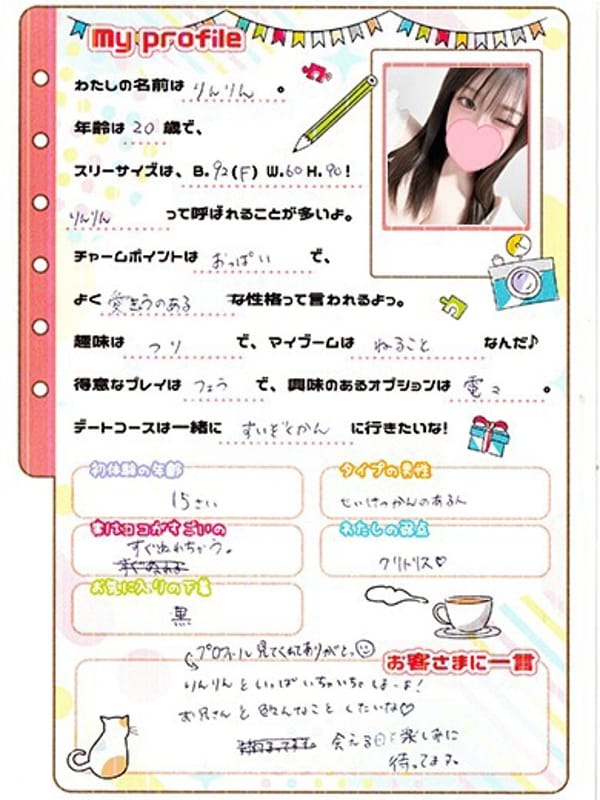 My profile
わたしの名前は りんりん 。
年齢は 20 歳で、
スリーサイズは、B.92(F) W.60 H.90!
りんりん って呼ばれることが多いよ。
チャームポイントは おっぱい で、
よく 愛きょうのある な性格って言われるよっ。
趣味は つり で、マイブームは ねること なんだ♪
得意なプレイは フェラ で、興味のあるオプションは 電マ 。
デートコースは一緒に すいぞくかん に行きたいな!
初体験の年齢
15さい
タイプの男性
せいけつかんのある人
実はココがすごいの
すぐぬれちゃう。
わたしの弱点
クリトリス♡
お気に入りの下着
黒
プロフィール見てくれてありがとっ
お客さまに一言
りんりんといっぱいいちゃいちゃしよーよ!
お兄さんと色んなことしたいな♡
会える日を楽しみに
待ってます。